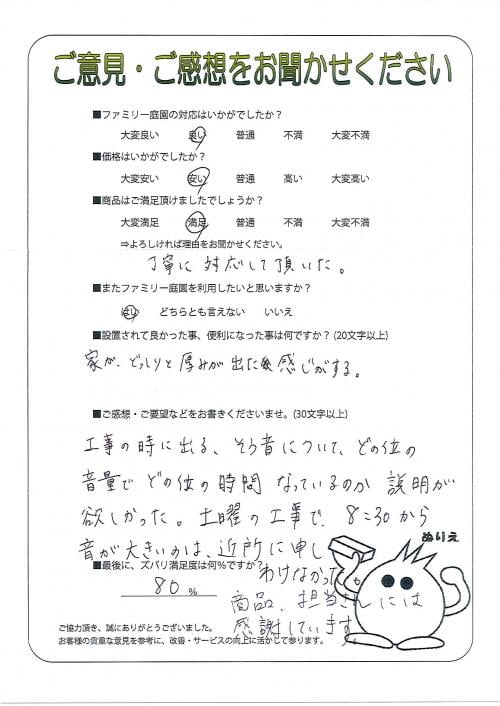 ご意見・ご感想をお聞かせください
■ファミリー庭園の対応はいかがでしたか?
大変良い 良い 普通 不満 大変不満
■価格はいかがでしたか?
大変安い 安い 普通 高い 大変高い
■商品はご満足頂けましたでしょうか?
大変満足 満足 普通 不満 大変不満
⇒よろしければ理由をお聞かせください。
丁寧に対応して頂いた。
■またファミリー庭園を利用したいと思いますか?
はい どちらとも言えない いいえ
■設置されて良かった事、便利になった事は何ですか?(20文字以上)
家が、どっしりと厚みが出た感じがする。
■ご感想・ご要望などをお書きくださいませ。(30文字以上)
工事の時に出る、そう音について、どの位の
音量でどの位の時間 なっているのか 説明が
欲しかった。土曜の工事で、8:30から
音が大きいのは、近所に申し
わけなかった
ぬりえ
■最後に、ズバリ満足度は何%ですか?
80%
商品、担当さんには
感謝しています。
ご協力頂き、誠にありがとうございました。
お客様の貴重な意見を参考に、改善・サービスの向上に活かして参ります。